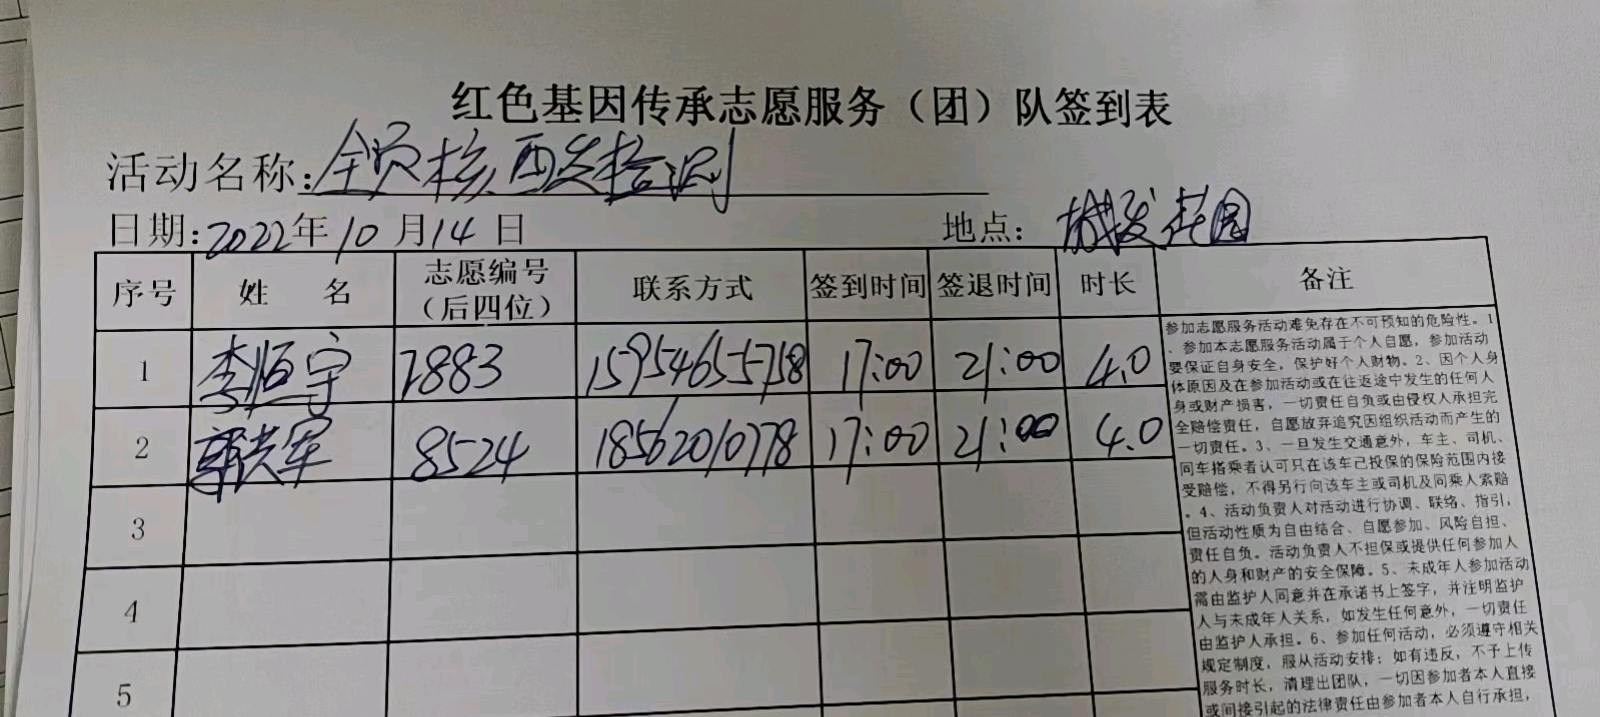 红色基因传承志愿服务（团）队签到表
活动名称:全员核酸检测
日期:2022年10月14日 地点: 城发花园
序号 姓 名 志愿编号（后四位） 联系方式 签到时间 签退时间 时长 备注
1 李恒宇 7883 15954655758 17:00 21:00 4.0
2 郭洪军 8524 18562010778 17:00 21:00 4.0
3
4
5
参加志愿服务活动难免存在不可预知的危险性。1
、参加本志愿服务活动属于个人自愿，参加活动
要保证自身安全，保护好个人财物。2、因个人身
体原因及在参加活动或在往返途中发生的任何人
身或财产损害，一切责任自负或由侵权人承担完
全赔偿责任，自愿放弃追究因组织活动而产生的
一切责任。3、一旦发生交通意外，车主、司机、
同车搭乘者认可只在该车已投保的保险范围内接
受赔偿，不得另行向该车主或司机及同乘人索赔
。4、活动负责人对活动进行协调、联络、指引，
但活动性质为自由结合、自愿参加、风险自担、
责任自负。活动负责人不担保或提供任何参加人
的人身和财产的安全保障。5、未成年人参加活动
需由监护人同意并在承诺书上签字，并注明监护
人与未成年人关系，如发生任何意外，一切责任
由监护人承担。6、参加任何活动，必须遵守相关
规定制度，服从活动安排；如有违反，不予上传
服务时长，清理出团队，一切因参加者本人直接
或间接引起的法律责任由参加者本人自行承担，